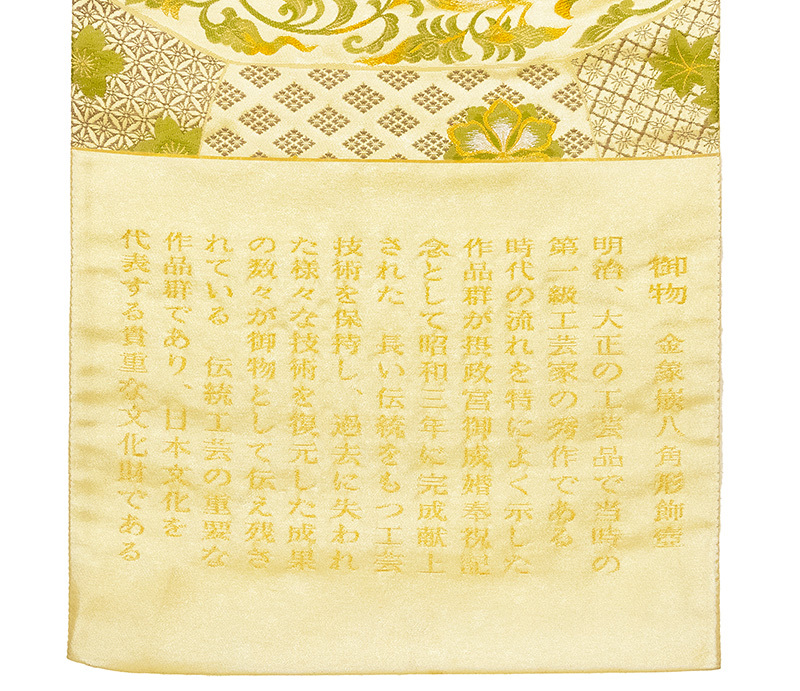 御物 金象嵌八角形飾壺
明治、大正の工芸品で当時の
第一級工芸家の秀作である
時代の流れを特によく示した
作品群が摂政宮御成婚奉祝記
念として昭和三年に完成献上
された 長い伝統をもつ工芸
技術を保持し、過去に失われ
た様々な技術を復元した成果
の数々が御物として伝え残さ
れている 伝統工芸の重要な
作品群であり、日本文化を
代表する貴重な文化財である